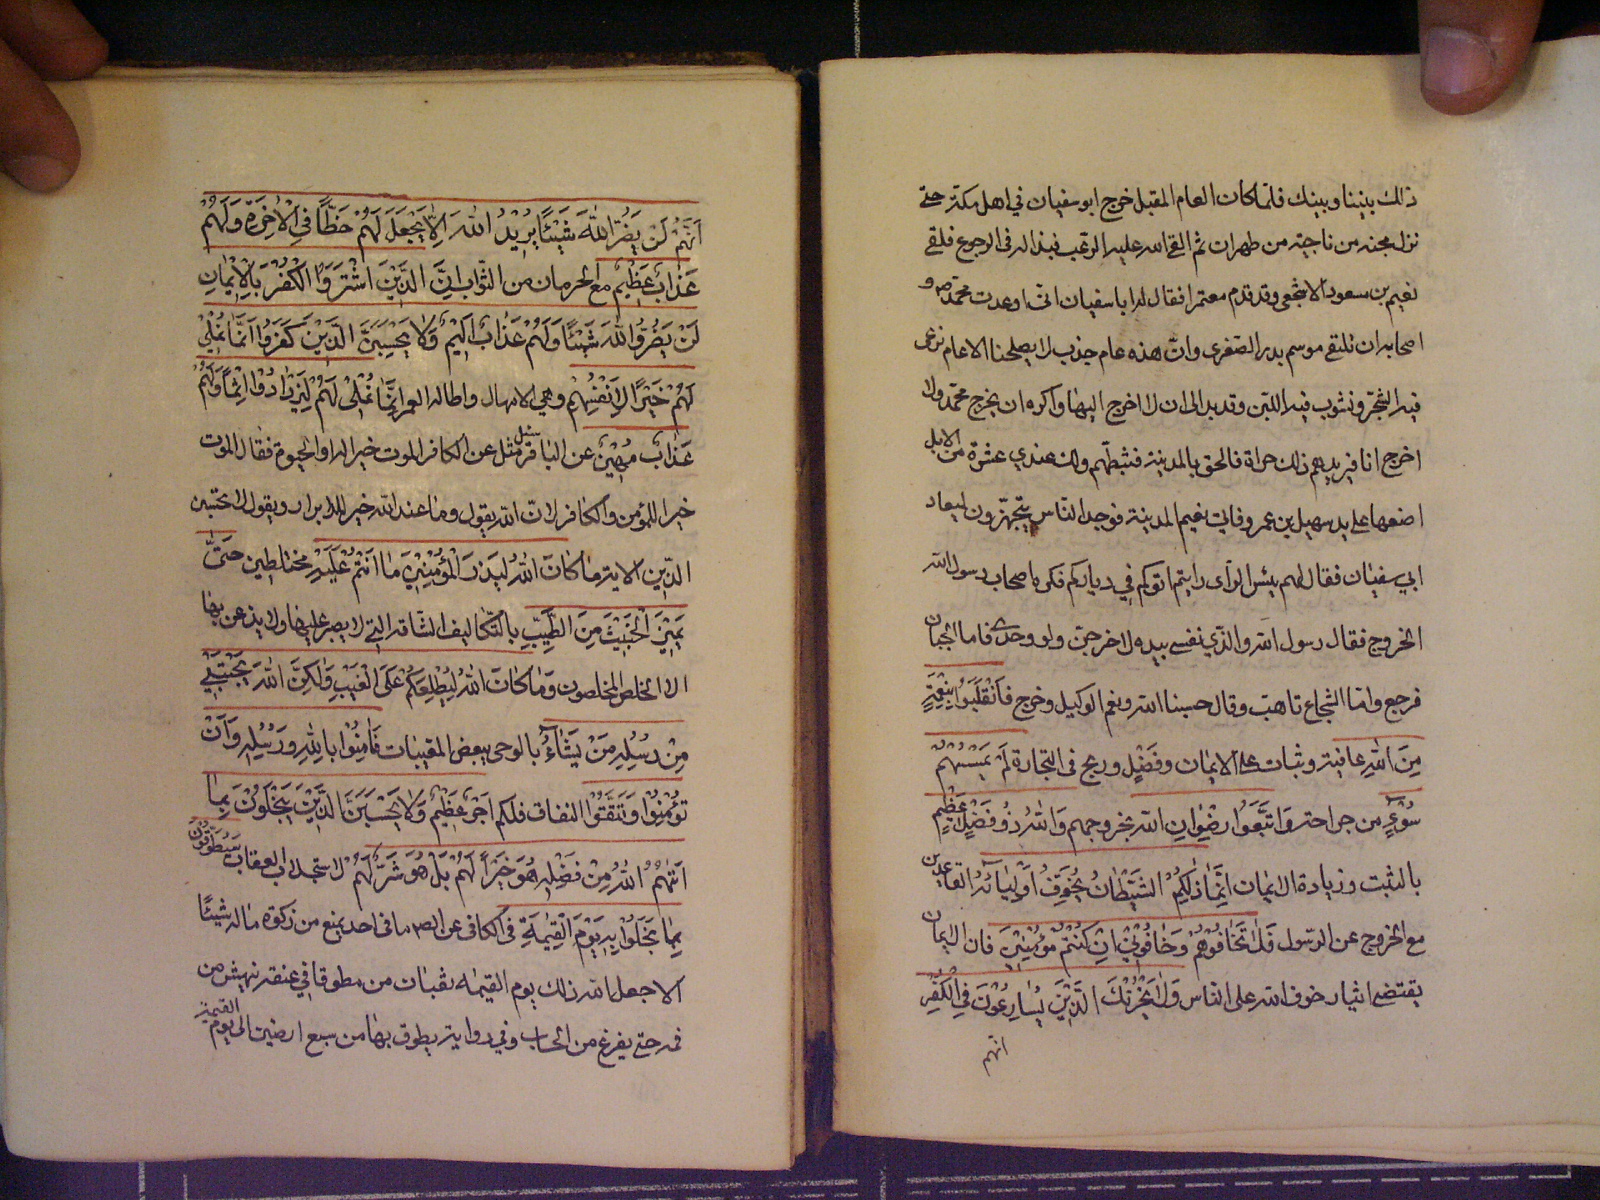 ذلك بيننا وبينك فلما كان العام المقبل خرج ابو سفيان في اهل مكة حتى
نزل مجنه من ناحية من ظهران ثم القى الله عليه الرعب فبذا له في الرجوع فلقى
نعيم بن مسعود الاشجعي وقد قدم معتمرا فقال له ابا سفيان انى اوعدت محمد ص و
اصحابه ان نلتقى موسم بدر الصغرى وانّ هذه عام جذب لا يصلحنا الا عام نرعى
فيه الشجر ونشرب فيه اللبن وقد بدا لى ان لا اخرج اليها واكره ان يخرج محمد ولا
اخرج انا فيزيدهم ذلك جراة فالحق بالمدينة فثبطهم ولك عندي عشرة من الابل
اضعها على يد سهيل بن عمرو فاتى نعيم المدينة فوجد الناس يتجهزون لميعاد
ابي سفيان فقال لهم بئس الراى رايتم اتوكم في دياركم فكره اصحاب رسول الله
الخروج فقال رسول الله والذي نفسى بيده لاخرجن ولو وحدى فاما الجبان
فرجع واما الشجاع تاهب وقال حسبنا الله ونعم الوكيل وخرج فَانْقَلَبُوا بِنِعْمَةٍ
مِنَ اللهِ عافية وثبات على الايمان وفَضْلٍ وربح في التجارة لَمْ يَمْسَسْهُمْ
سُوْءٌ من جراحة وَاتَّبَعُوا رِضْوَانِ الله بخروجهم وَاللهُ ذُو فَضْلٍ عَظِيْمٍ
بالتثبت وزيادة الايمان اِنَّمَا ذٰلِكُمُ الشَّيْطَانُ يُخَوِّفُ اَوْلِيَآئَهُ القاعدين
مع الخروج عن الرسول فَلَا تَخَافُوْهُمْ وَخَافُوْنِيْ اِنْ كُنْتُمْ مُؤْمِنِيْنَ فان الايمان
يقتضى ايثار خوف الله على الناس وَلَا يَحْزُنْكَ الَّذِيْنَ يُسَارِعُوْنَ فِي الْكُفْرِ
انهم
اَنَّهُمْ لَنْ يَضُرُّ اللهَ شَيْئًا يُرِيْدُ اللهُ اَلَّا يَجْعَلَ لَهُمْ حَظًّا فِي الْاٰخِرَةِ وَلَهُمْ
عَذَابٌ عَظِيْمٌ مع الحرمان من الثواب اِنَّ الَّذِيْنَ اشْتَرَوُا الْكُفْرَ بِالْاِيْمَانِ
لَنْ يَضُرُّوا اللهَ شَيْئًا وَلَهُمْ عَذَابٌ اَلِيْمٌ وَلَا يَحْسَبَنَّ الَّذِيْنَ كَفَرُوا اَنَّمَا نُمْلِيْ
لَهُمْ خَيْرًا لِاَنْفُسِهِمْ وهي الامهال واطالة العمر اِنَّمَا نُمْلِيْ لَهُمْ لِيَزْدَادُوْا اِثْمًا وَلَهُمْ
عَذَابٌ مُهِيْنٌ عن الباقر سئل عن الكافر الموت خير له او الحيوة فقال الموت
خير للمؤمن والكافر لانّ الله يقول وما عند الله خير للابرار ويقول لا يحسبن
الذين الاية مَا كَانَ اللهُ لِيَذَرَ الْمُؤْمِنِيْنَ مَا اَنْتُمْ عَلَيْهِ مختلطين حَتّٰى
يَمِيْزَ الْخَبِيْثَ مِنَ الطَّيِّبِ بالتكاليف الشاقة التي لا يصبر عليها ولا يذعن بها
الا الخلص المخلصون وَمَا كَانَ اللهُ لِيُطْلِعَكُمْ عَلَى الْغَيْبِ وَلٰكِنَّ اللهَ يَجْتَبِيْ
مِنْ رُسُلِهِ مَنْ يَشَآءُ بالوحى ببعض المغيبات فَاٰمِنُوْا بِاللهِ وَرُسُلِهِ وَاَنْ
تُؤْمِنُوْا وَتَتَّقُوْا النفاق فلكم اَجْرٌ عَظِيْمٌ وَلَا يَحْسَبَنَّ الَّذِيْنَ يَبْخَلُوْنَ بِمَا
اٰتٰهُمُ اللهُ مِنْ فَضْلِهِ هُوَ خَيْرًا لَهُمْ بَلْ هُوَ شَرٌّ لَهُمْ لاستجلاب العقاب سَيُطَوَّقُوْنَ
بِمَا بَخِلُوْا بِهِ يَوْمَ الْقِيٰمَةِ في الكافى عن الص ما من احد يمنع من زكوة ماله شيئًا
الا جعل الله ذلك يوم القيمة ثعبان من مطوقا في عنقه نهيش من
لحمه حتى يفرغ من الحساب وفي رواية يطوق بها من سبع ارضين الى يوم القيمة